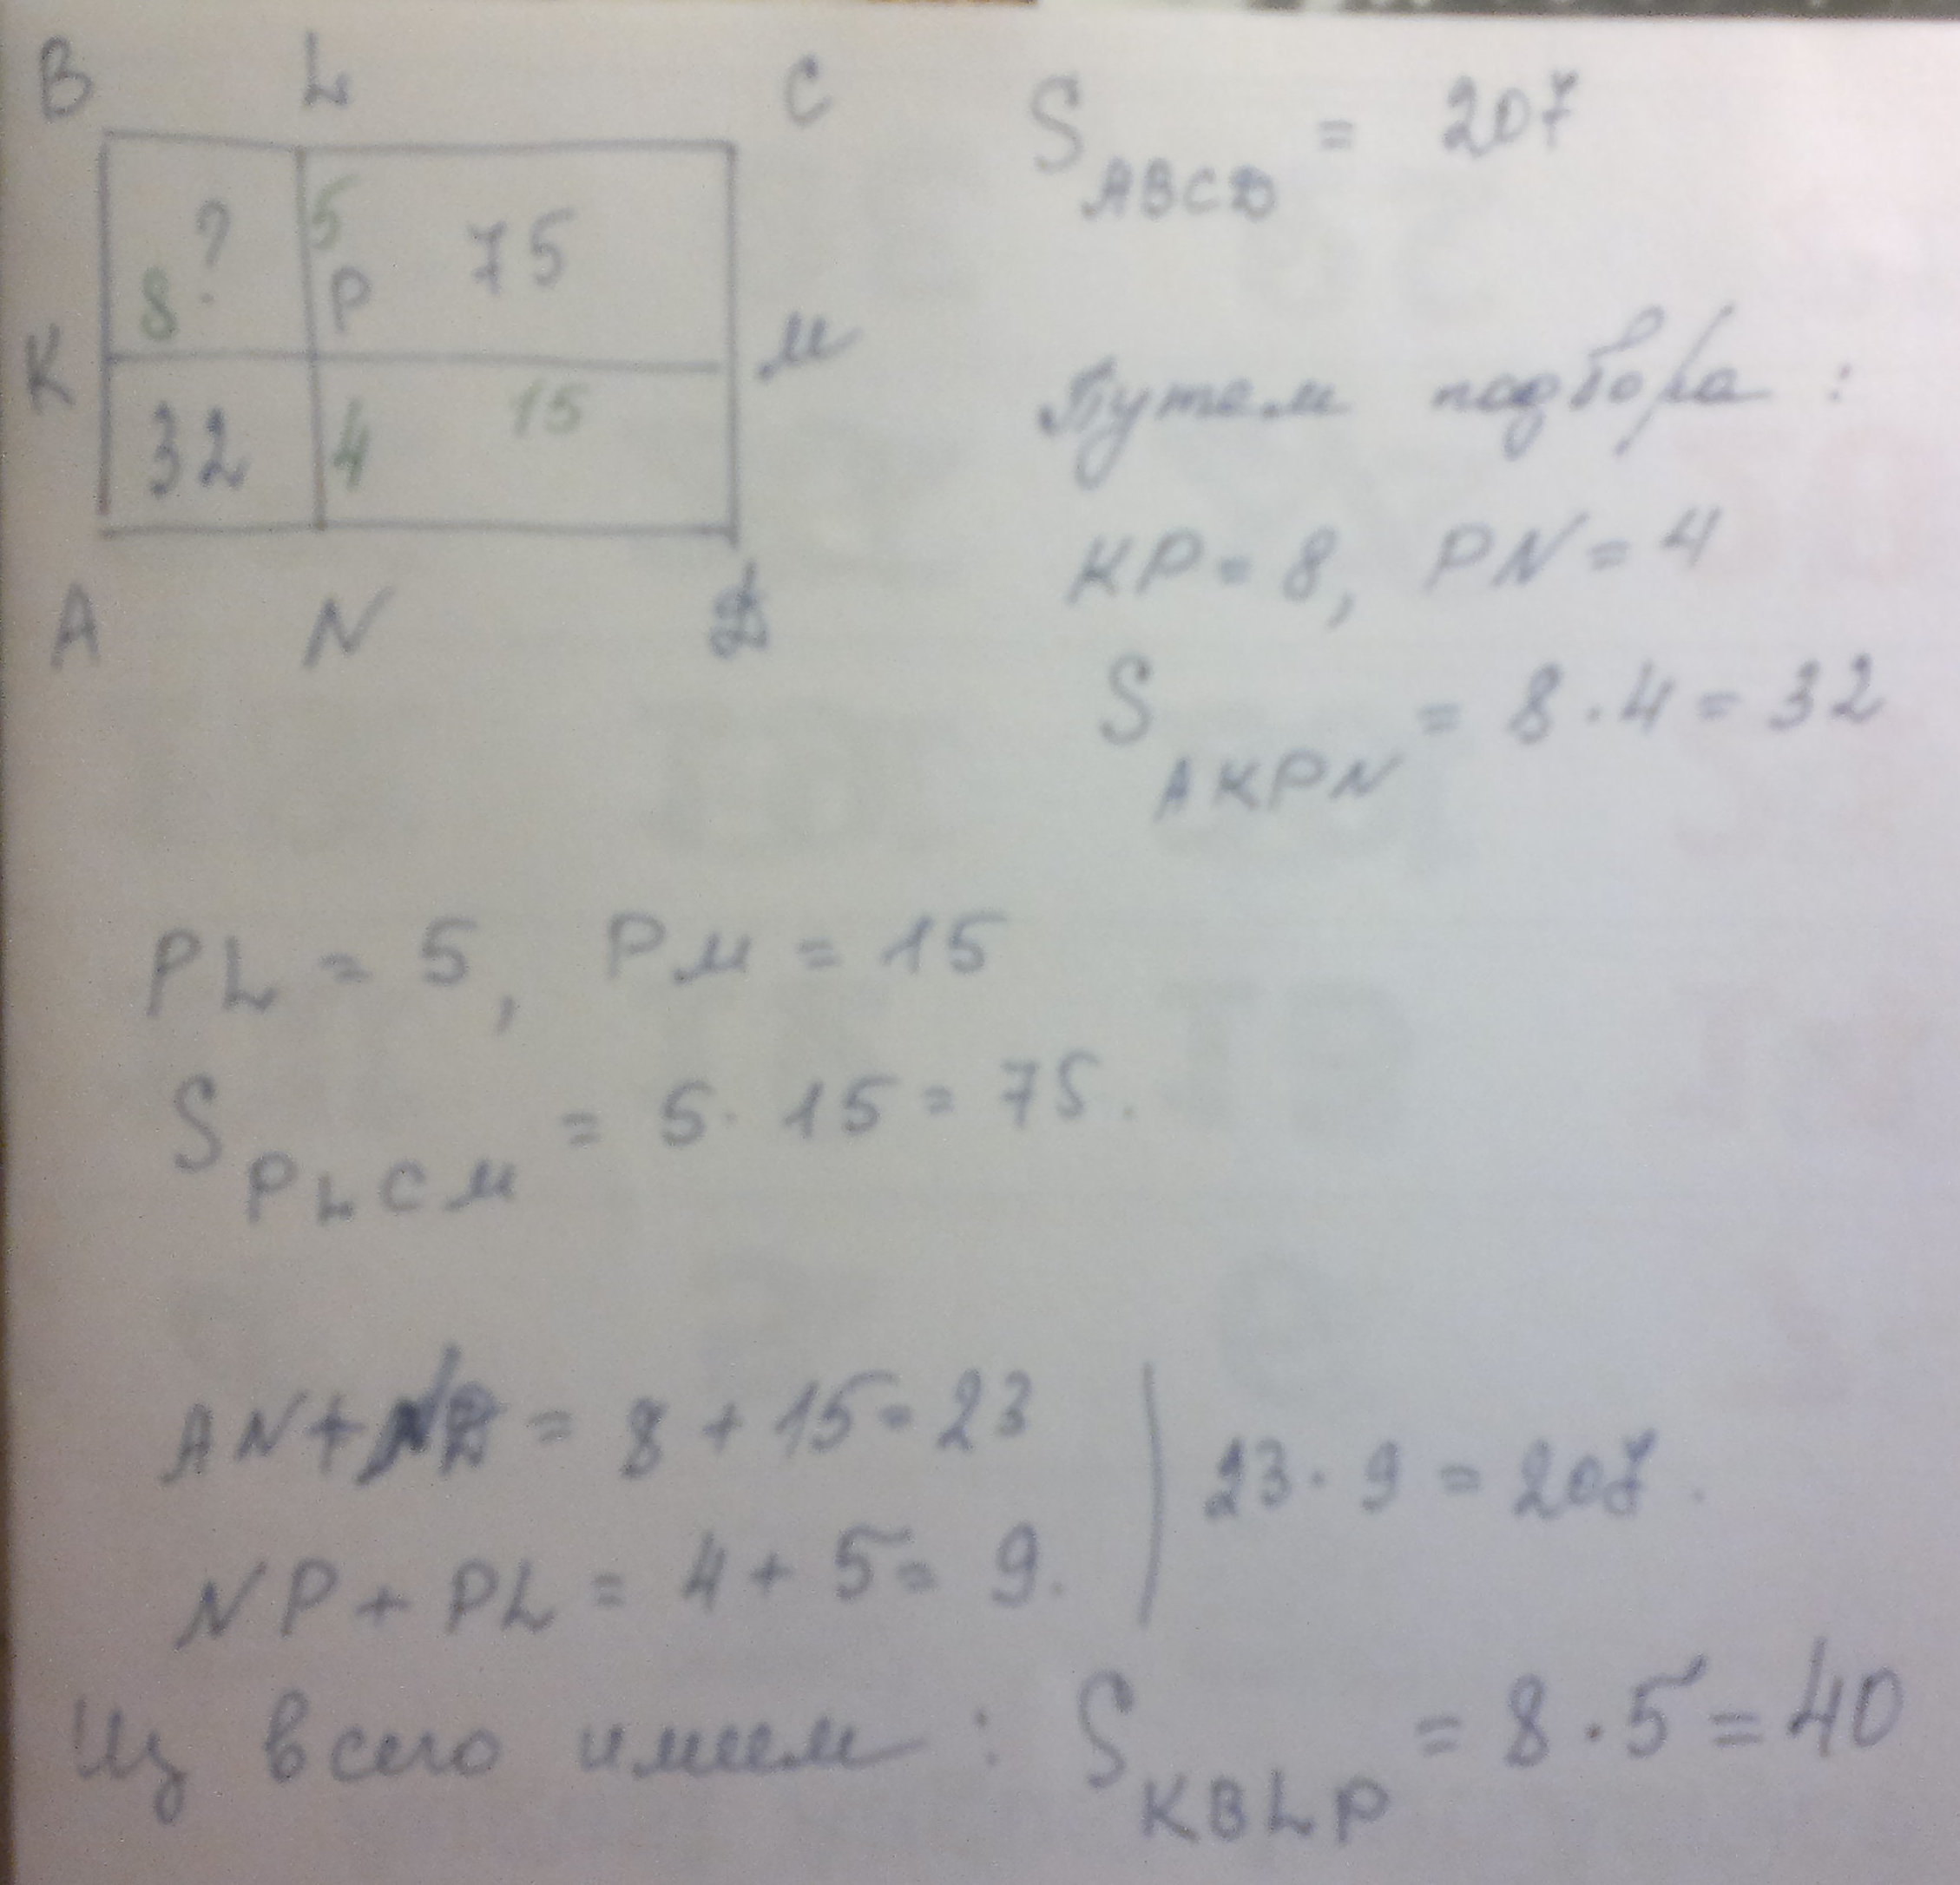 B L C
? 5 75
8 P
K M
32 4 15
A N D
S ABCD = 207
Путем подбора :
KP = 8, PN = 4
S AKPN = 8 · 4 = 32
PL = 5, PM = 15
S PLCM = 5 · 15 = 75.
AN + ND = 8 + 15 = 23
NP + PL = 4 + 5 = 9.
23 · 9 = 207.
Из всего имеем : S KBLP = 8 · 5 = 40